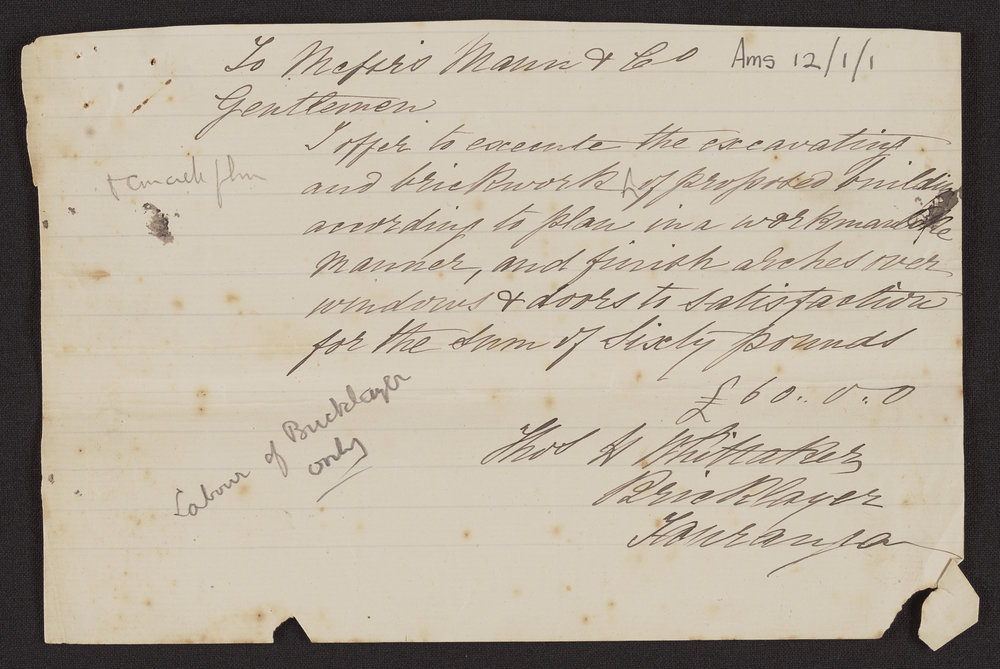 To Messrs Mann & Co
Ams 12/1/1
Gentlemen
I offer to execute the excavating
and brickwork of proposed building
according to plan in a workmanlike
manner, and finish arches over
windows & doors to satisfaction
for the sum of Sixty pounds
£60..0..0
Labour of Bricklayer
only
Thos H Whittaker
Bricklayer
Tauranga